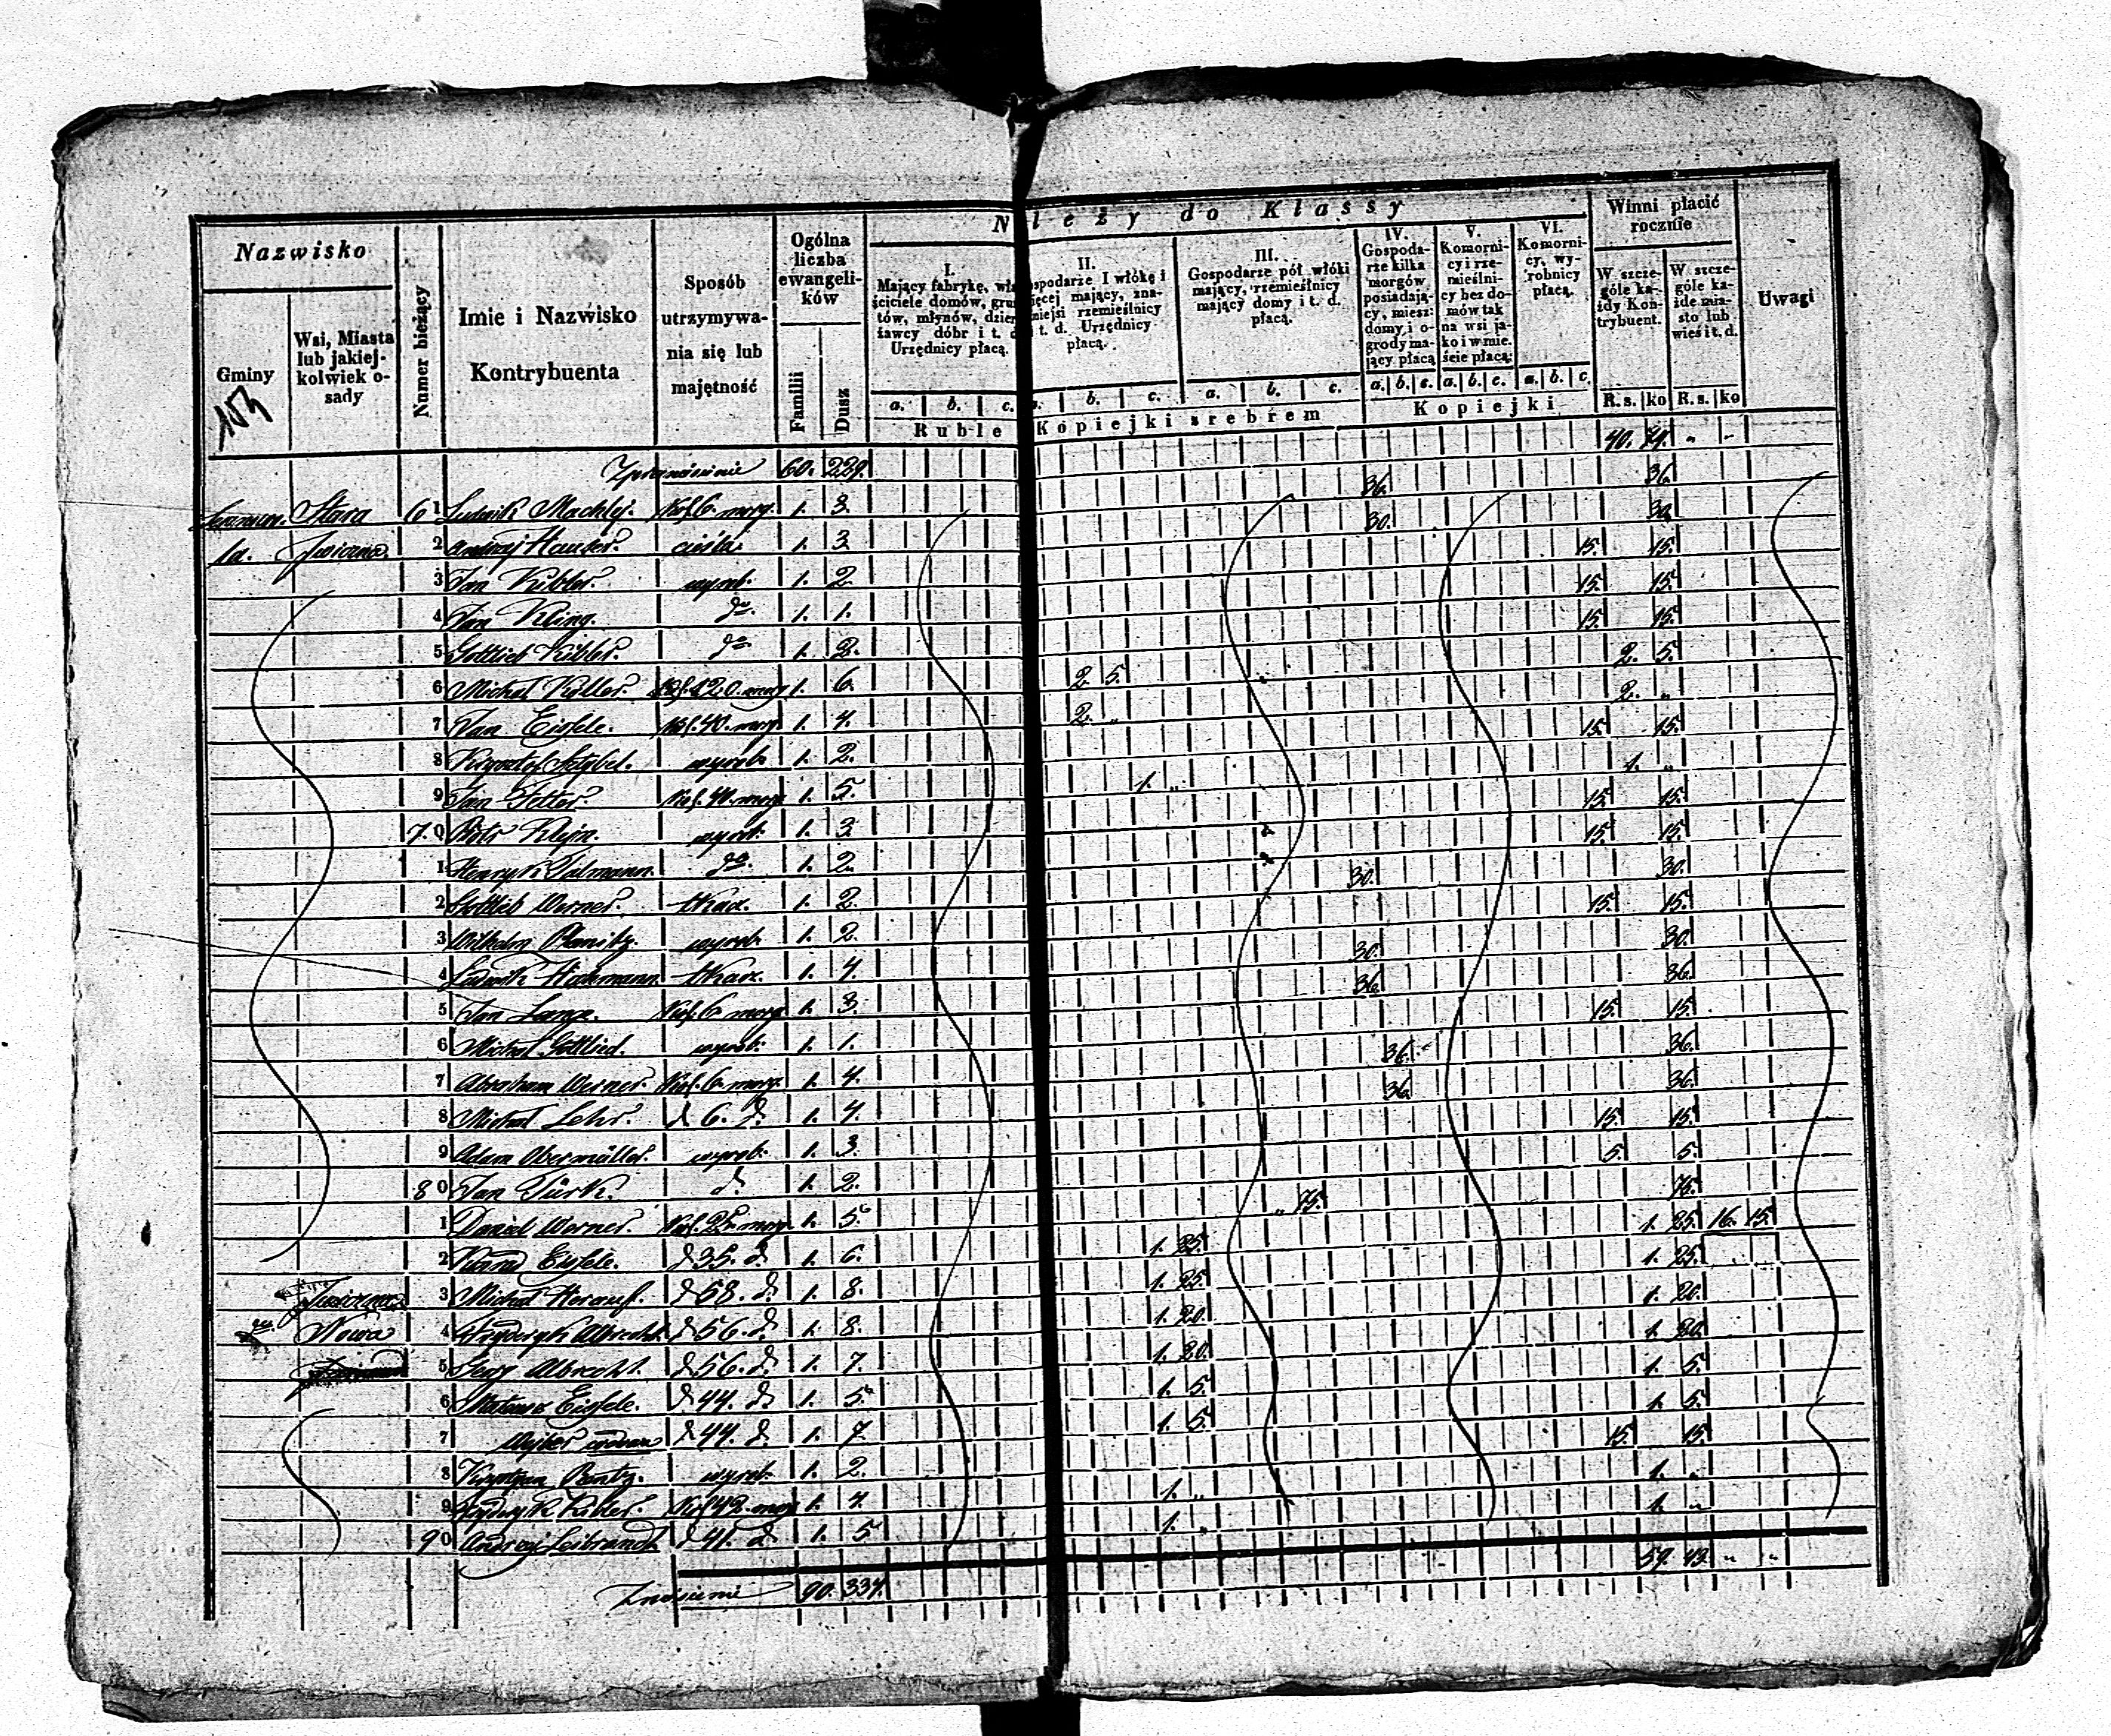 Nazwisko
Gminy
Wsi, Miasta lub jakiej- kolwiek o- sady
Numer bieżący
Imie i Nazwisko Kontrybuenta
Sposób utrzymywa- nia się lub majętność
Ogólna liczba ewangeli- ków
Familii
Dusz
Należy do Klassy
I. Mający fabrykę, wła- ściciele domów, grun- tów, młynów, dzier- żawcy dóbr i t. d. Urzędnicy płacą.
II. Gospodarze I włókę i więcej mający, zna- czniejsi rzemieślnicy i t. d. Urzędnicy płacą.
III. Gospodarze pół włóki mający, rzemieślnicy mający domy i t. d. płacą.
IV. Gospoda- rze kilka morgów posiadają- cy, miesz: domy i o- grody ma- jący płacą
V. Komorni- cy i rze- mieślni- cy bez do- mów tak na wsi ja- ko i w mie- ście płacą:
VI. Komorni- cy, wy- robnicy płacą.
Winni płacić rocznie
W szcze- góle ka- żdy Kon- trybuent.
W szcze- góle ka- żde mia- sto lub wieś i t. d.
Uwagi
a. b. c. a. b. c. a. b. c. a. b. c. a. b. c. a. b. c.
Ruble Kopiejki srebrem Kopiejki R.s. ko R.s. ko
Zprzeniesienia 60. 239. 40. 74. „ „
Stara 61 Ludwik Machlej. Kol. 6. morg. 1. 3. 36. 36.
Iwiczna 2 Andrzej Hauser. cieśla. 1. 3 30. 30.
3 Jan Kibler. wyrob. 1. 2. 15. 15.
4 Jan Kling. do. 1. 1. 15. 15.
5 Gottlieb Kibler. do. 1. 2. 15. 15.
6 Michał Keller. Kol. 120. morg 1. 6. 2. 5. 2. 5.
7 Jan Eisele. Kol. 40. morg. 1. 4. 2. „ 2. „
8 Krysztof wyrob. 1. 2. 15. 15.
9 Jan Kol. 40. morg 1. 5. 1. „ 1. „
70 Piotr Klejn. wyrob. 1. 3. 15. 15.
1 Henryk Talmann. do. 1. 2. 15. 15.
2 Gottlieb Werner. tkacz. 1. 2. 30. 30.
3 Wilhelm wyrob. 1. 2. 15. 15.
4 Ludwik tkacz. 1. 4. 30. 30.
5 Jan Lange. Kol. 6 morg 1. 3. 36. 36.
6 Michał Gottlied. wyrob. 1. 1. 15. 15.
7 Abraham Werner. Kol. 6. morg. 1. 4. 36. 36.
8 Michał Lehr. d. 6. d. 1. 4. 36. 36.
9 Adam Obermüller. wyrob. 1. 3. 15. 15.
80 Jan Türk. d. 1. 2. 5. 5.
1 Daniel Werner. Kol. 25. morg. 1. 5. „ 75. 75.
2 Konrad Eisele. d 35. d. 1. 6. 1. 25. 1. 25. 16. 15.
Iwiczna 3 Michał Herauf. d 58. d. 1. 8. 1. 25. 1. 25.
Nowa 4 Fryderyk Albrecht. d 56. d. 1. 8. 1. 20. 1. 20.
5 Jerzy Albrecht. d 56. d. 1. 7. 1. 20. 1. 20.
6 Mateusz Eisele. d 44. d. 1. 5. 1. 5. 1. 5.
7 d 44. d. 1. 7. 1. 5. 1. 5.
8 Krystyan wyrob. 1. 2. 15. 15.
9 Fryderyk Kibler. Kol 42. morg 1. 4. 1. „ 1. „
90 Andrzej Leibrandt d 41. d. 1. 5 1. „ 1. „
90. 337. 59. 43. „ „